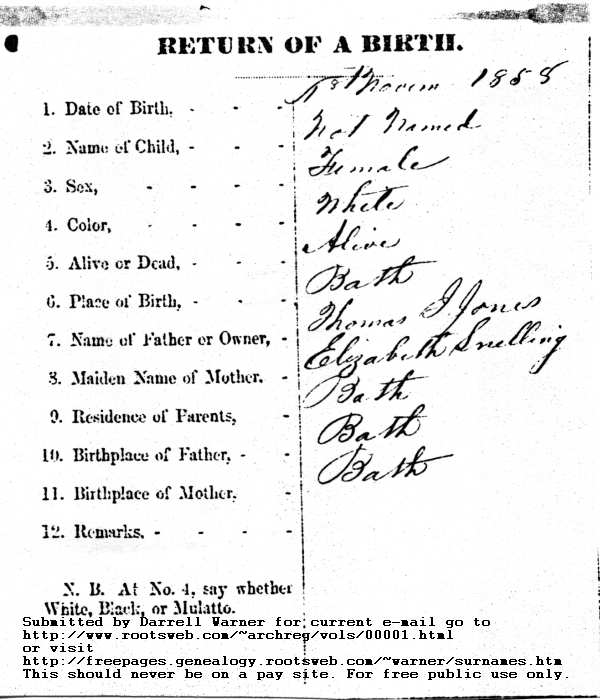 RETURN OF A BIRTH.
1. Date of Birth, - - - 1st Novem 1858
2. Name of Child, - - - Not Named
3. Sex, - - - - Female
4. Color, - - - White
5. Alive or Dead, - - - Alive
6. Place of Birth, - - - Bath
7. Name of Father or Owner, - Thomas J Jones
8. Maiden Name of Mother. - Elizabeth Snelling
9. Residence of Parents, - Bath
10. Birthplace of Father, - - Bath
11. Birthplace of Mother, - Bath
12. Remarks, - - - -
N. B. At No. 4, say whether
White, Black, or Mulatto.
Submitted by Darrell Warner for current e-mail go to
http://www.rootsweb.com/~archreg/vols/00001.html
or visit
http://freepages.genealogy.rootsweb.com/~warner/surnames.htm
This should never be on a pay site. For free public use only.